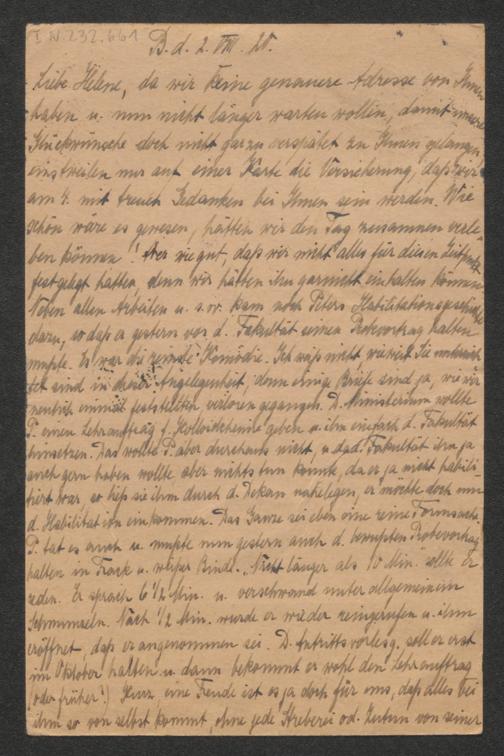 I N. 232.661
B. d. 2. VIII. 20.
Liebe Helene, da wir keine genauere Adresse von Ihnen
haben u. nun nicht länger warten wollen, damit unsere
Glückwünsche doch nicht gar zu verspätet zu Ihnen gelangen,
einstweilen nur auf einer Karte die Versicherung, daß wir
am 4. mit treuen Gedanken bei Ihnen sein werden. Wie
schön wäre es gewesen, hätten wir den Tag zusammen verle-
ben können! Aber wie gut, daß wir nicht alles für diesen Zeitpunkt
festgelegt hatten, denn wir hätten ihn garnicht einhalten können.
Neben allen Arbeiten u. s. w. kam noch Peters Habilitationsgeschichte
dazu, so daß er gestern vor d. Fakultät seinen Probevortrag halten
mußte. Es war die reinste Komödie. Ich weiß nicht wieweit Sie unterrich-
tet sind in dieser Angelegenheit, denn einige Briefe sind ja, wie wir
neulich einmal feststellten, verloren gegangen. D. Ministerium wollte
P. einen Lehrauftrag f. Kolloidchemie geben u. ihn einfach d. Fakultät
hinsetzen. Das wollte P. aber durchaus nicht, u. da d. Fakultät ihn ja
auch gern haben wollte, aber nichts tun konnte, da er ja nicht habili-
tiert war, so ließ sie ihm durch d. Dekan nahelegen, er möchte doch um
d. Habilitation einkommen. Das Ganze sei eben eine reine Formsache.
P. tat es auch u. mußte nun gestern auch d. bewußten Probevortrag
halten in Frack u. weißer Binde. „Nicht länger als 10 Min." sollte er
reden. Er sprach 6 1/2 Min. u. verschwand unter allgemeinem
Schmunzeln. Nach 1/2 Min. wurde er wieder reingerufen u. ihm
eröffnet, daß er angenommen sei. D. Antrittsvorlesg. soll er erst
im Oktober halten u. dann bekommt er wohl den Lehrauftrag
(oder früher?) Kurz, eine Freude ist es ja doch für uns, daß alles bei
ihm so von selbst kommt, ohne jede Streberei od. Zutun von seiner